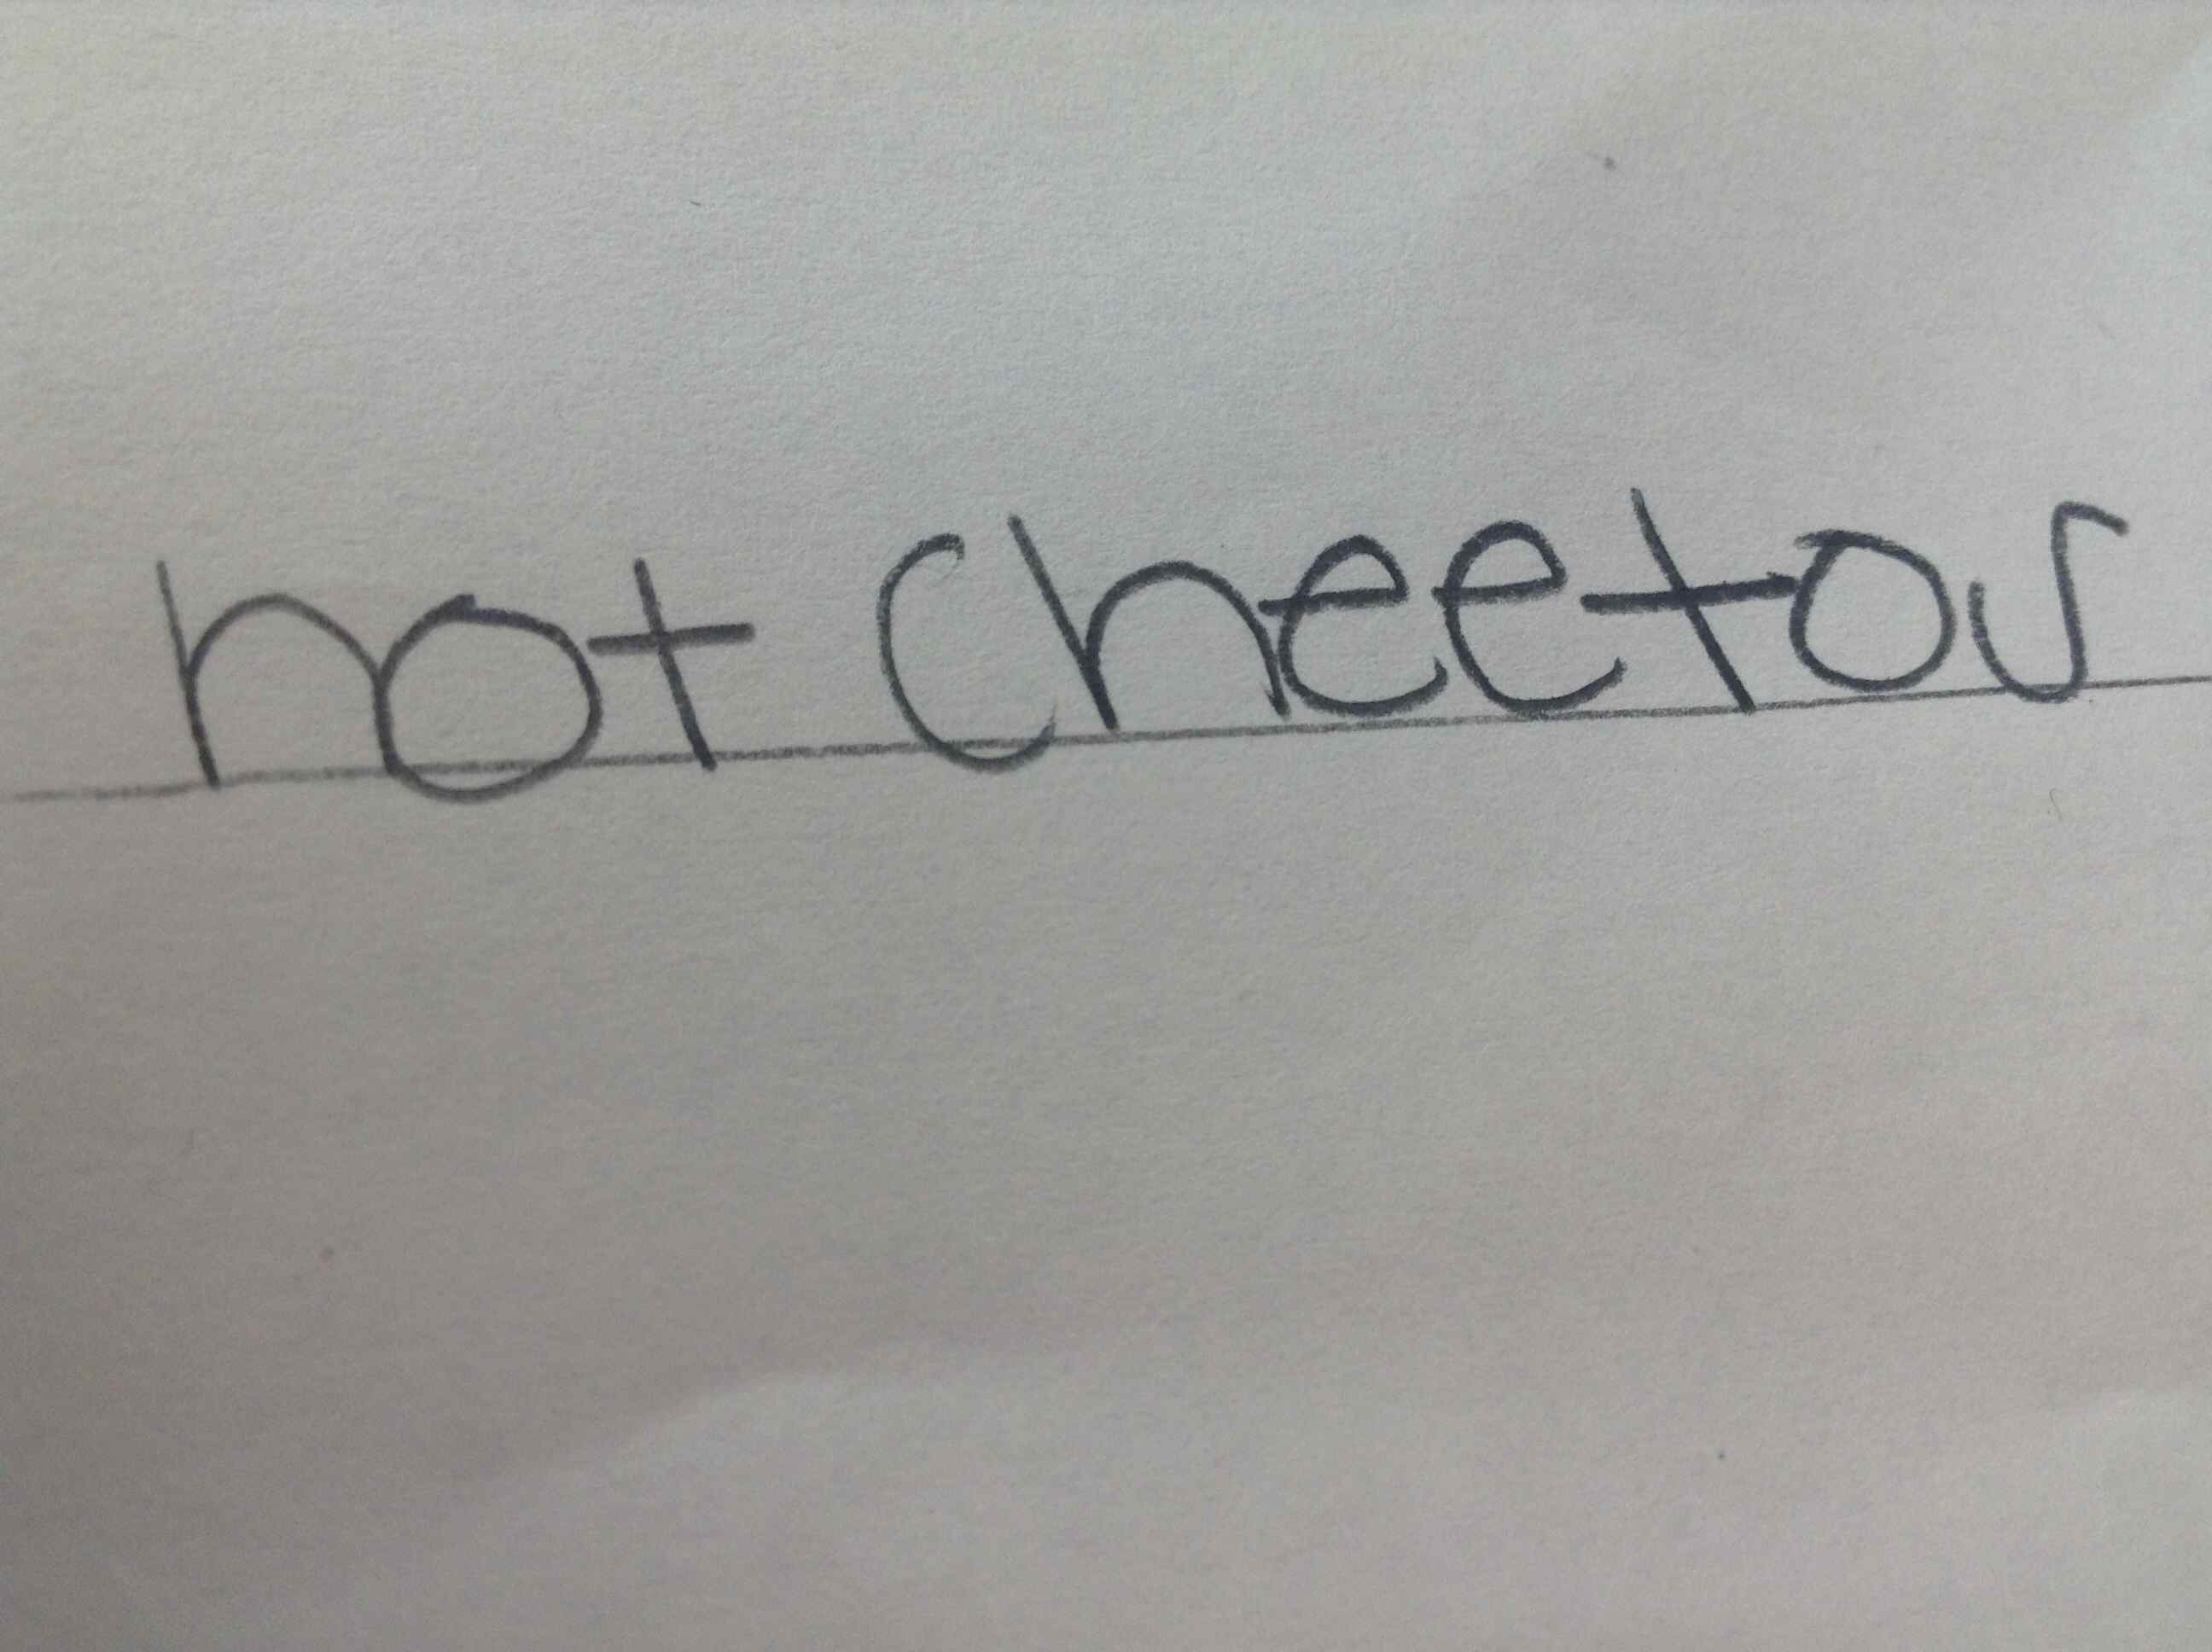 hot Cheetos